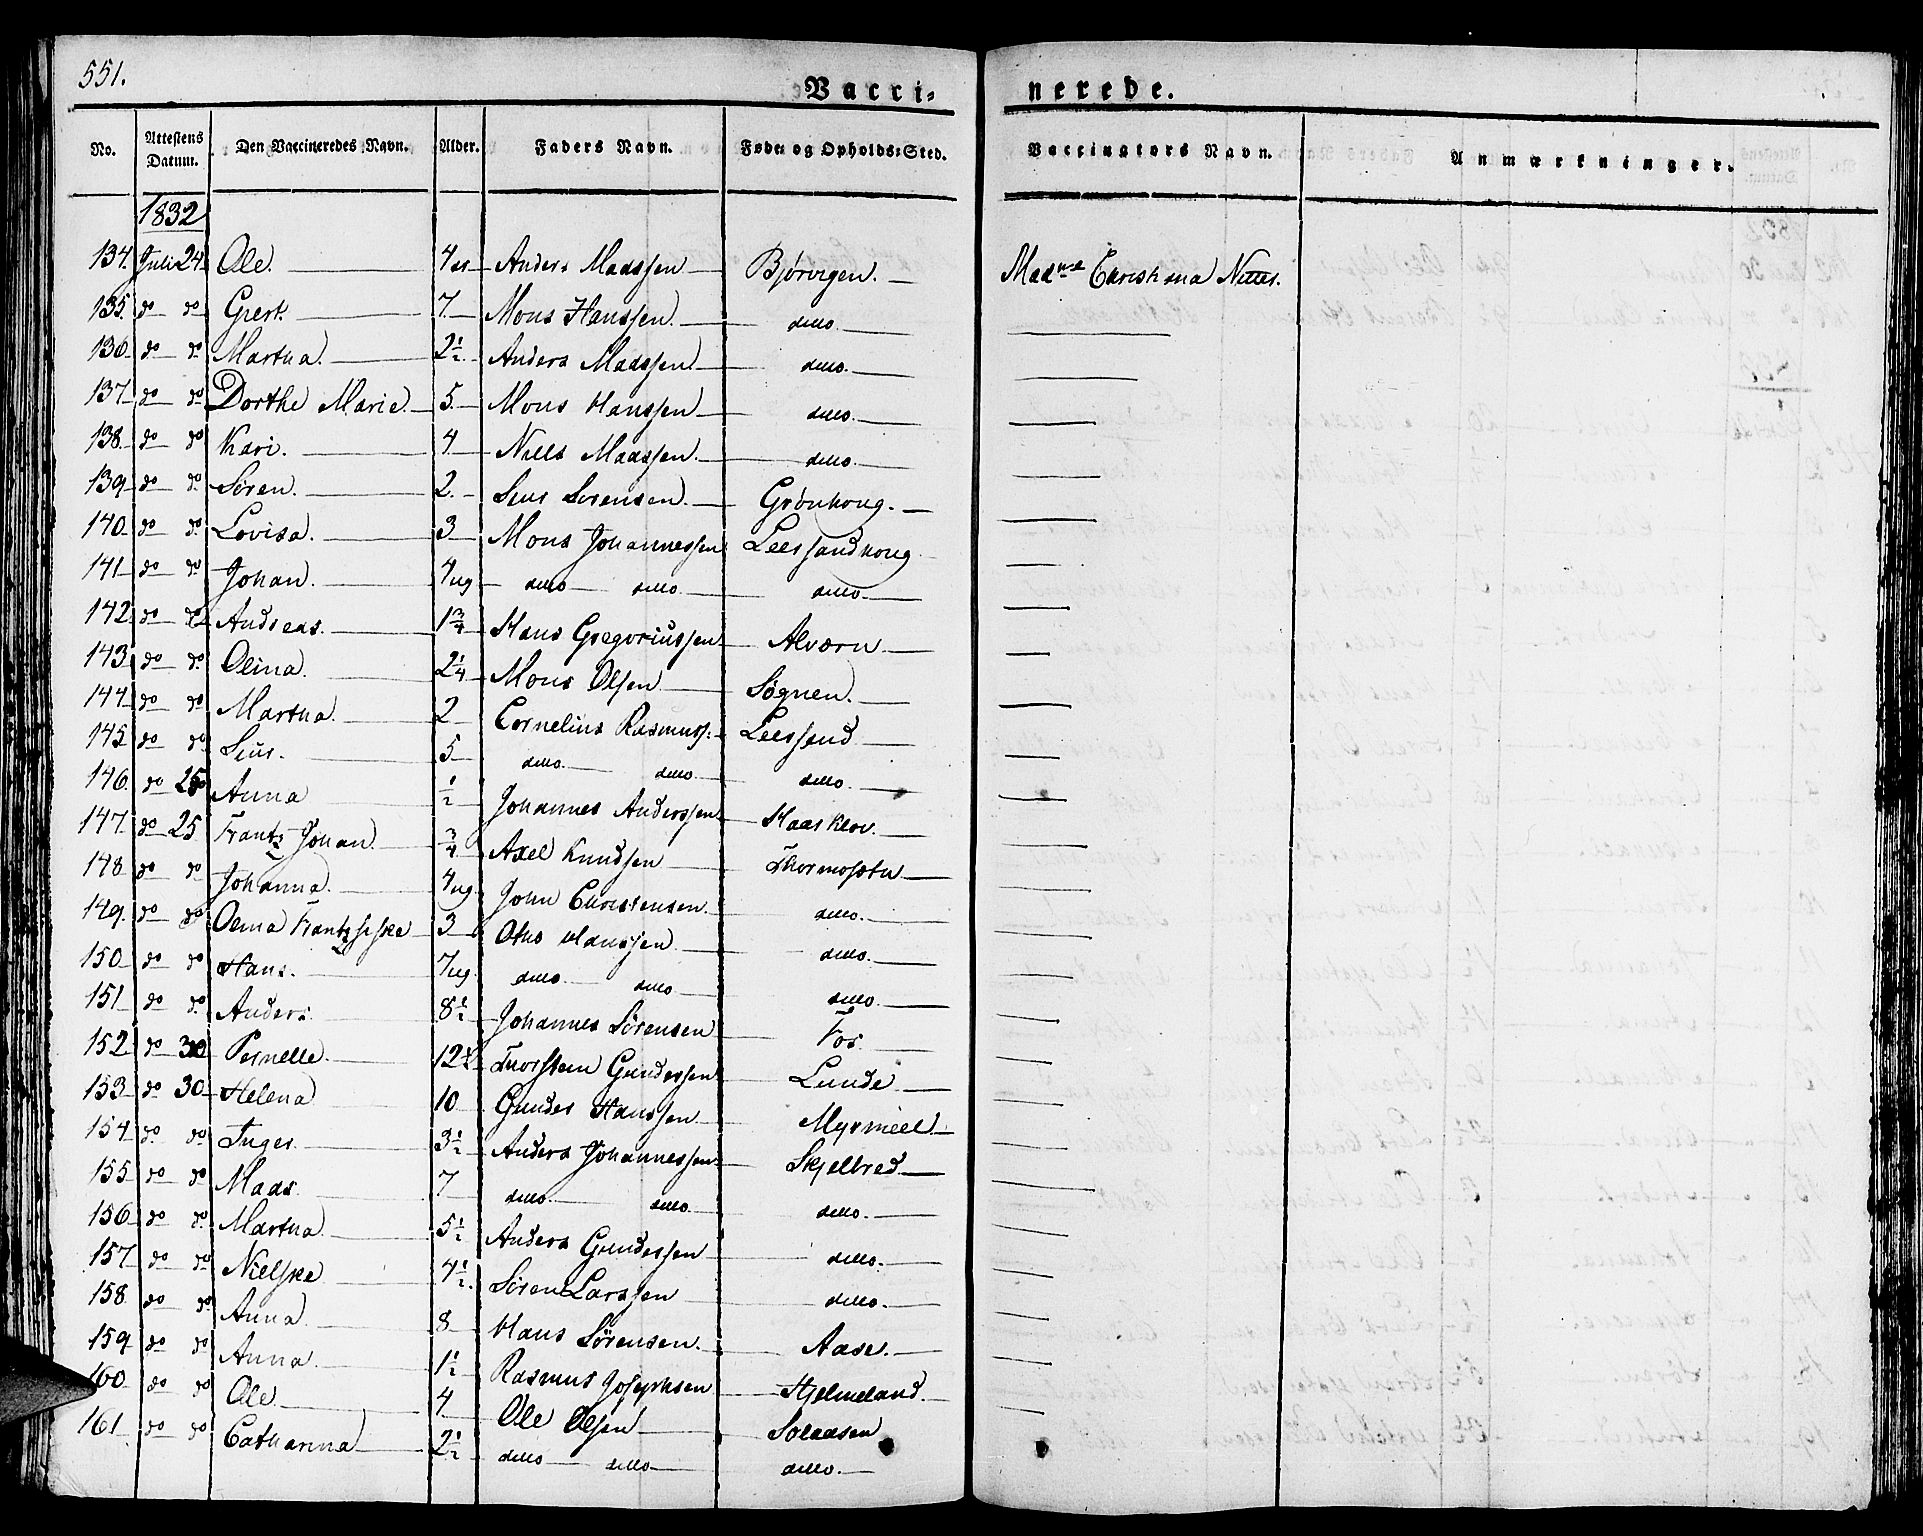 551.
Vacci- nerede.
No. Attestens Datum. Den Vaccineredes Navn. Alder. Faders Navn. Føde og Opholds-Sted. Vaccinators Navn. Anmærkninger.
1832
134. Juli 24. Ole. 4 Anders Maassen Bjørvigen. Christiana
135. do do Gjert. 7. Mons Hanssen. ditto.
136. do do Martha. 2½. Anders Maassen ditto.
137. do do Dorthe Marie. 5. Mons Hanssen ditto.
138. do do Kari. 4 Niels Maassen. ditto.
139. do do Søren. 2. Sørensen. Grønhoug.
140. do do Lovisa. 3 Mons Johannessen
141. do do Johan. 4 ug ditto ditto. ditto.
142. do do Andreas. 1¾ Hans Gregoriussen Alværn
143. do do Olina. 2¼ Mons Olsen Søgnen.
144. do do Martha. 2 Cornelius Rasmuss:
145. do do 5 ditto. ditto ditto.
146. do 25 Anna ½ Johannes Anderssen
147. do 25 Frantz Johan ¾ Axel Knudsen
148. do do Johanna. 4 ug. John Christensen. ditto.
149. do do 3 Otto Hanssen ditto.
150. do do Hans. 7 ug. ditto. ditto ditto.
151 do do Anders 8½ Johannes Sørensen Fos
152. do 30 Pernelle. 12 Thorsten Gundersen Lunde
153. do 30 Helena 10 Gunder Hanssen
154. do do Inger 3½ Anders Johannessen Skjelbred
155 do do Maas. 7 ditto. ditto. ditto.
156. do do Martha. 5½ Anders Gundersen ditto.
157. do do Nielske 4½. Søren Larssen ditto.
158. do do Anna. 8 Hans Sørensen. Aase.
159 do do Anna. 1½ Rasmus Josephsen Hjelmeland.
160 do do Ole 4 Ole Olsen Solaasen
161. do do Catharina 2½ ditto ditto ditto.